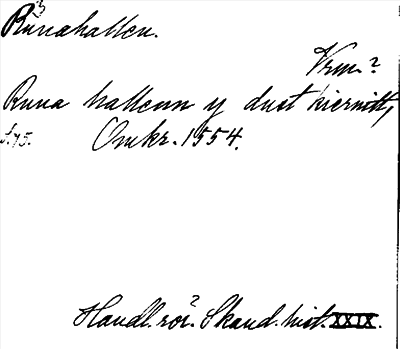 Runahallen.
Vrm.?
Runa hallenn y dust hiernitt,
f. 75. Omkr. 1554.
Handl. rör. Skand. hist. XXIX.